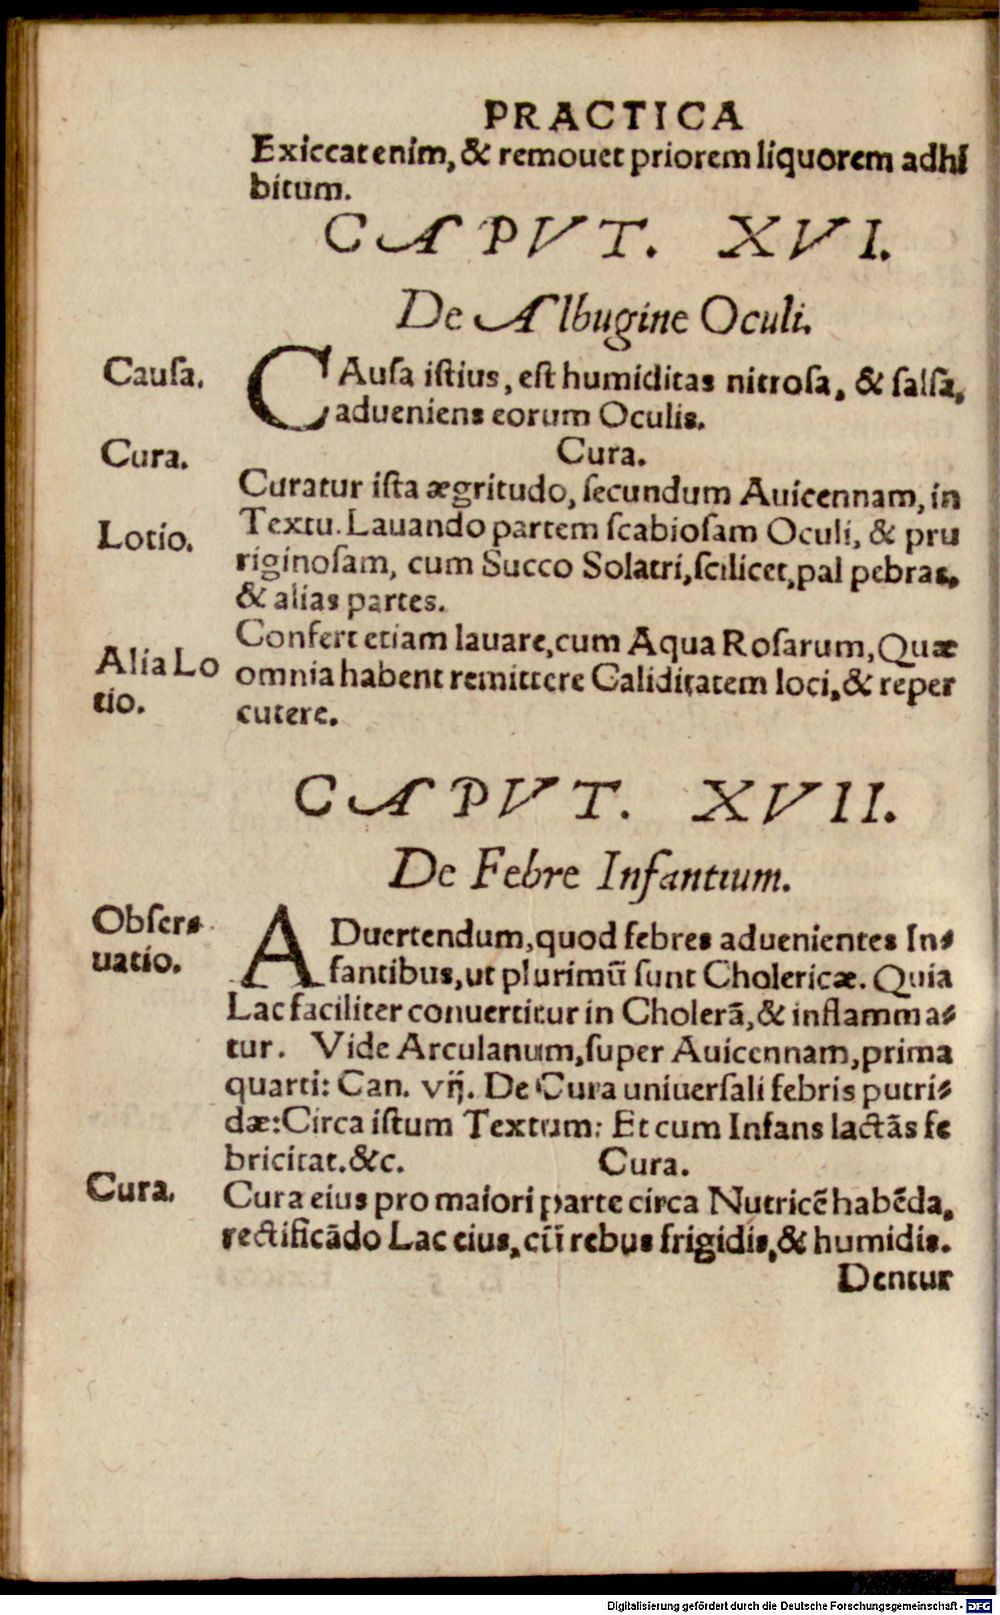 PRACTICA
Exiccat enim, & remouet priorem liquorem adhi
bitum.
CAPVT. XVI.
De Albugine Oculi.
Causa.
CAuſa iſtius, eſt humiditas nitroſa, & ſalſa,
adueniens eorum Oculis.
Cura.
Cura.
Curatur iſta ægritudo, ſecundum Auicennam, in
Lotio.
Textu. Lauando partem ſcabioſam Oculi, & pru
riginoſam, cum Succo Solatri, ſcilicet, pal pebras,
& alias partes.
Confert etiam lauare, cum Aqua Roſarum, Quæ
Alia Lo
tio.
omnia habent remittere Caliditatem loci, & reper
cutere.
CAPVT. XVII.
De Febre Infantium.
Obſer⸗
uatio.
ADuertendum, quod febres aduenientes In⸗
fantibus, ut plurimū ſunt Cholericæ. Quia
Lac faciliter conuertitur in Cholerā, & inflamma⸗
tur. Vide Arculanum, ſuper Auicennam, prima
quarti: Can. vij. De Cura uniuerſali febris putri⸗
dæ: Circa iſtum Textum: Et cum Infans lactās fe
bricitat. &c.
Cura.
Cura.
Cura eius pro maiori parte circa Nutricē habēda,
rectificādo Lac eius, cū rebus frigidis, & humidis.
Dentur
Digitalisierung gefördert durch die Deutsche Forschungsgemeinschaft - DFG